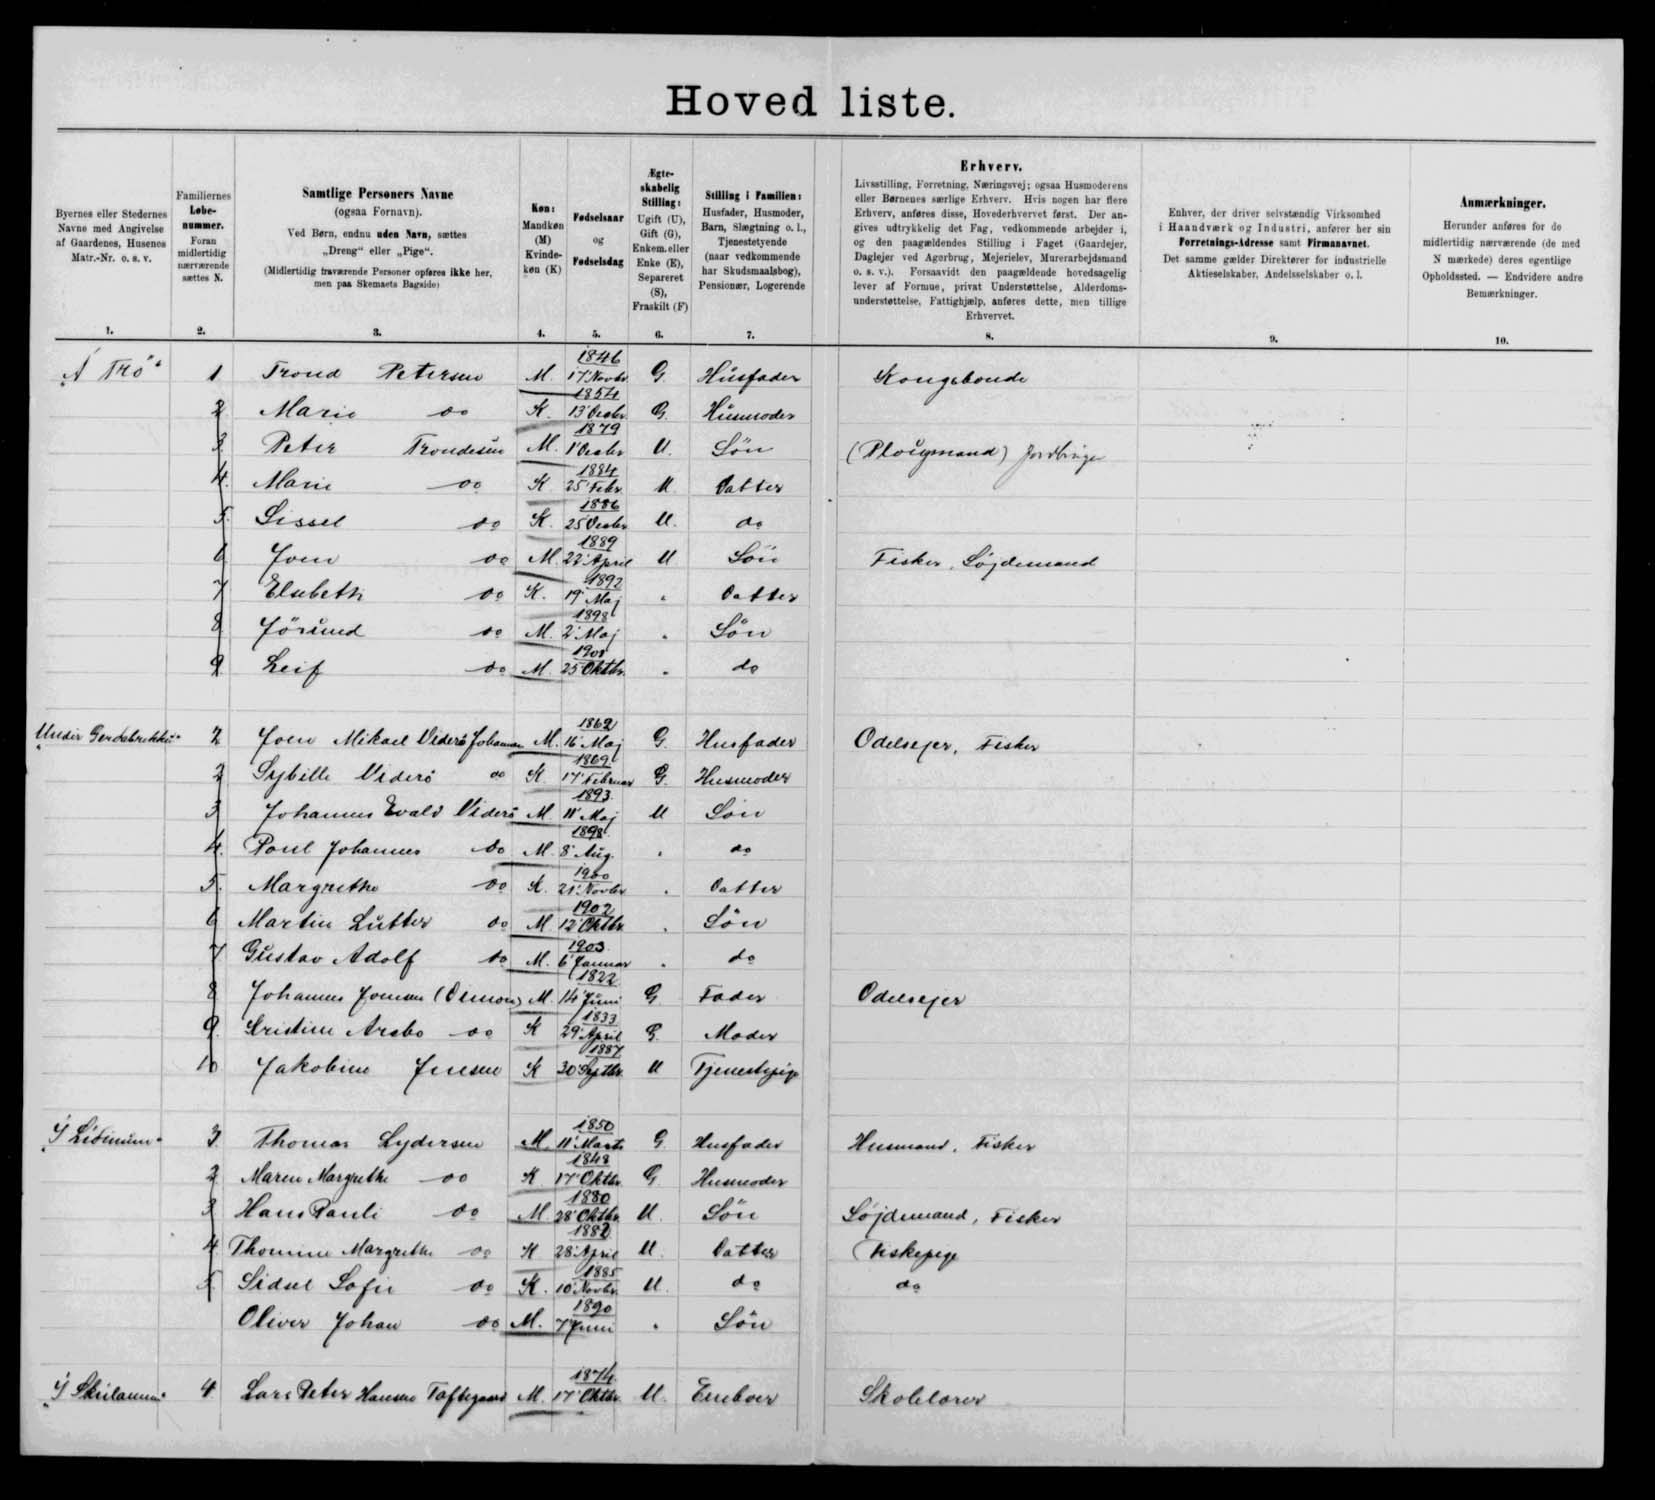 Hoved liste.
Byernes eller Stedernes
Navne med Angivelse
af Gaardenes, Husenes
Matr.-Nr. o. s. v.
1.
Familiernes
Løbe-
nummer.
Foran
midlertidig
nærværende
sættes N.
2.
Samtlige Personers Navne
(ogsaa Fornavn).
Ved Børn, endnu uden Navn, sættes
„Dreng“ eller „Pige“.
(Midlertidig fraværende Personer opføres ikke her,
men paa Skemaets Bagside)
3.
Køn:
Mandkøn
(M)
Kvinde-
køn (K)
4.
Fødselsaar
og
Fødselsdag
5.
Ægte-
skabelig
Stilling:
Ugift (U),
Gift (G),
Enkem. eller
Enke (E),
Separeret
(S),
Fraskilt (F)
6.
Stilling i Familien:
Husfader, Husmoder,
Barn, Slægtning o. l.,
Tjenestetyende
(naar vedkommende
har Skudsmaalsbog),
Pensionær, Logerende
7.
Erhverv.
Livsstilling, Forretning, Næringsvej; ogsaa Husmoderens
eller Børnenes særlige Erhverv. Hvis nogen har flere
Erhverv, anføres disse, Hovederhvervet først. Der an-
gives udtrykkelig det Fag, vedkommende arbejder i,
og den paagældendes Stilling i Faget (Gaardejer,
Daglejer ved Agerbrug, Mejerielev, Murerarbejdsmand
o. s. v.). Forsaavidt den paagældende hovedsagelig
lever af Formue, privat Understøttelse, Alderdoms-
understøttelse, Fattighjælp, anføres dette, men tillige
Erhvervet.
8.
Enhver, der driver selvstændig Virksomhed
i Haandværk og Industri, anfører her sin
Forretnings-Adresse samt Firmanavnet.
Det samme gælder Direktører for industrielle
Aktieselskaber, Andelsselskaber o. l.
9.
Anmærkninger.
Herunder anføres for de
midlertidig nærværende (de med
N mærkede) deres egentlige
Opholdssted. — Endvidere andre
Bemærkninger.
10.
„Á Trö“ 1 Trond Petersen M. 1846 17' Novbr. G. Húsfader Kongsbonde
2 Marie do K. 1854 13' Decbr G. Húsmoder
3 Peter Trondesen M. 1879 1' Decbr U. Sön (Plougmand) Jordbruger
4. Marie do K 1884 25' Febr. U Datter
5. Sissel do K. 1886 25' Decbr U. do
6 Joen do M. 1889 22' April U Sön Fisker, Sløjdemand
7 Elsebeth do K. 1892 19' Maj " Datter
8 Jörund do M. 1898 2' Maj " Sön
9 Leif do M. 25 Oktbr. " do
„Undir Gerdabrekku“ 2 Joen Mikael Viderö Johannesen M. 1862 16' Maj G. Husfader Odelsejer, Fisker
2 Sybille Viderö do K 1869 17' Februar G. Husmoder
3 Johannes Evald Viderö M. 1893. 11' Maj U Sön
4. Poul Johannes do M. 1898. 8' Aug. " do
5. Margrethe do K. 1900 21' Novbr " Datter
6 Martin Lutter do M. 1902 12' Oktbr. " Sön
7 Gustav Adolf do M. 1903. 6' Januar " do
8 Johannes Joensen M. 1822 14' Juni G Fader Odelsejer
9. Kristine Arabo do K 1833 29' April G. Moder
10 Jakobine Jensen K 1887 30' Septbr. U Tjenestepige
3 Thomas Lydersen M. 1850 11' Marts G Husfader Husmand, Fisker
2 Maren Margrethe do K 1848 17' Oktbr. G. Husmoder
3 Hans Pauli do M. 1880 28' Oktbr. U. Sön Sløjdemand, Fisker
4 Thomine Margrethe do K 1882 28' April U. Datter Fiskepige
5 Sidsel Sofie do K. 1885 10' Novbr. U. do do
Oliver Johan do M. 1890 7' Juni " Sön
4 Lars Peter Hansen Toftegaard M. 1874 17' Oktbr. U. Eneboer Skolelærer